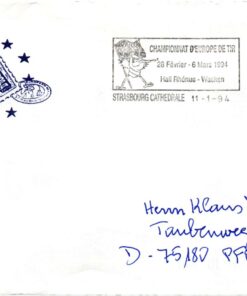 CHAMPIONNAT D'EUROPE DE TIR
28 Février - 6 Mars 1994
Hall Rhénus - Wacken
STRASBOURG CATHEDRALE 11-1-94
Herrn Klaus
Taubenwee
D-75180 PF